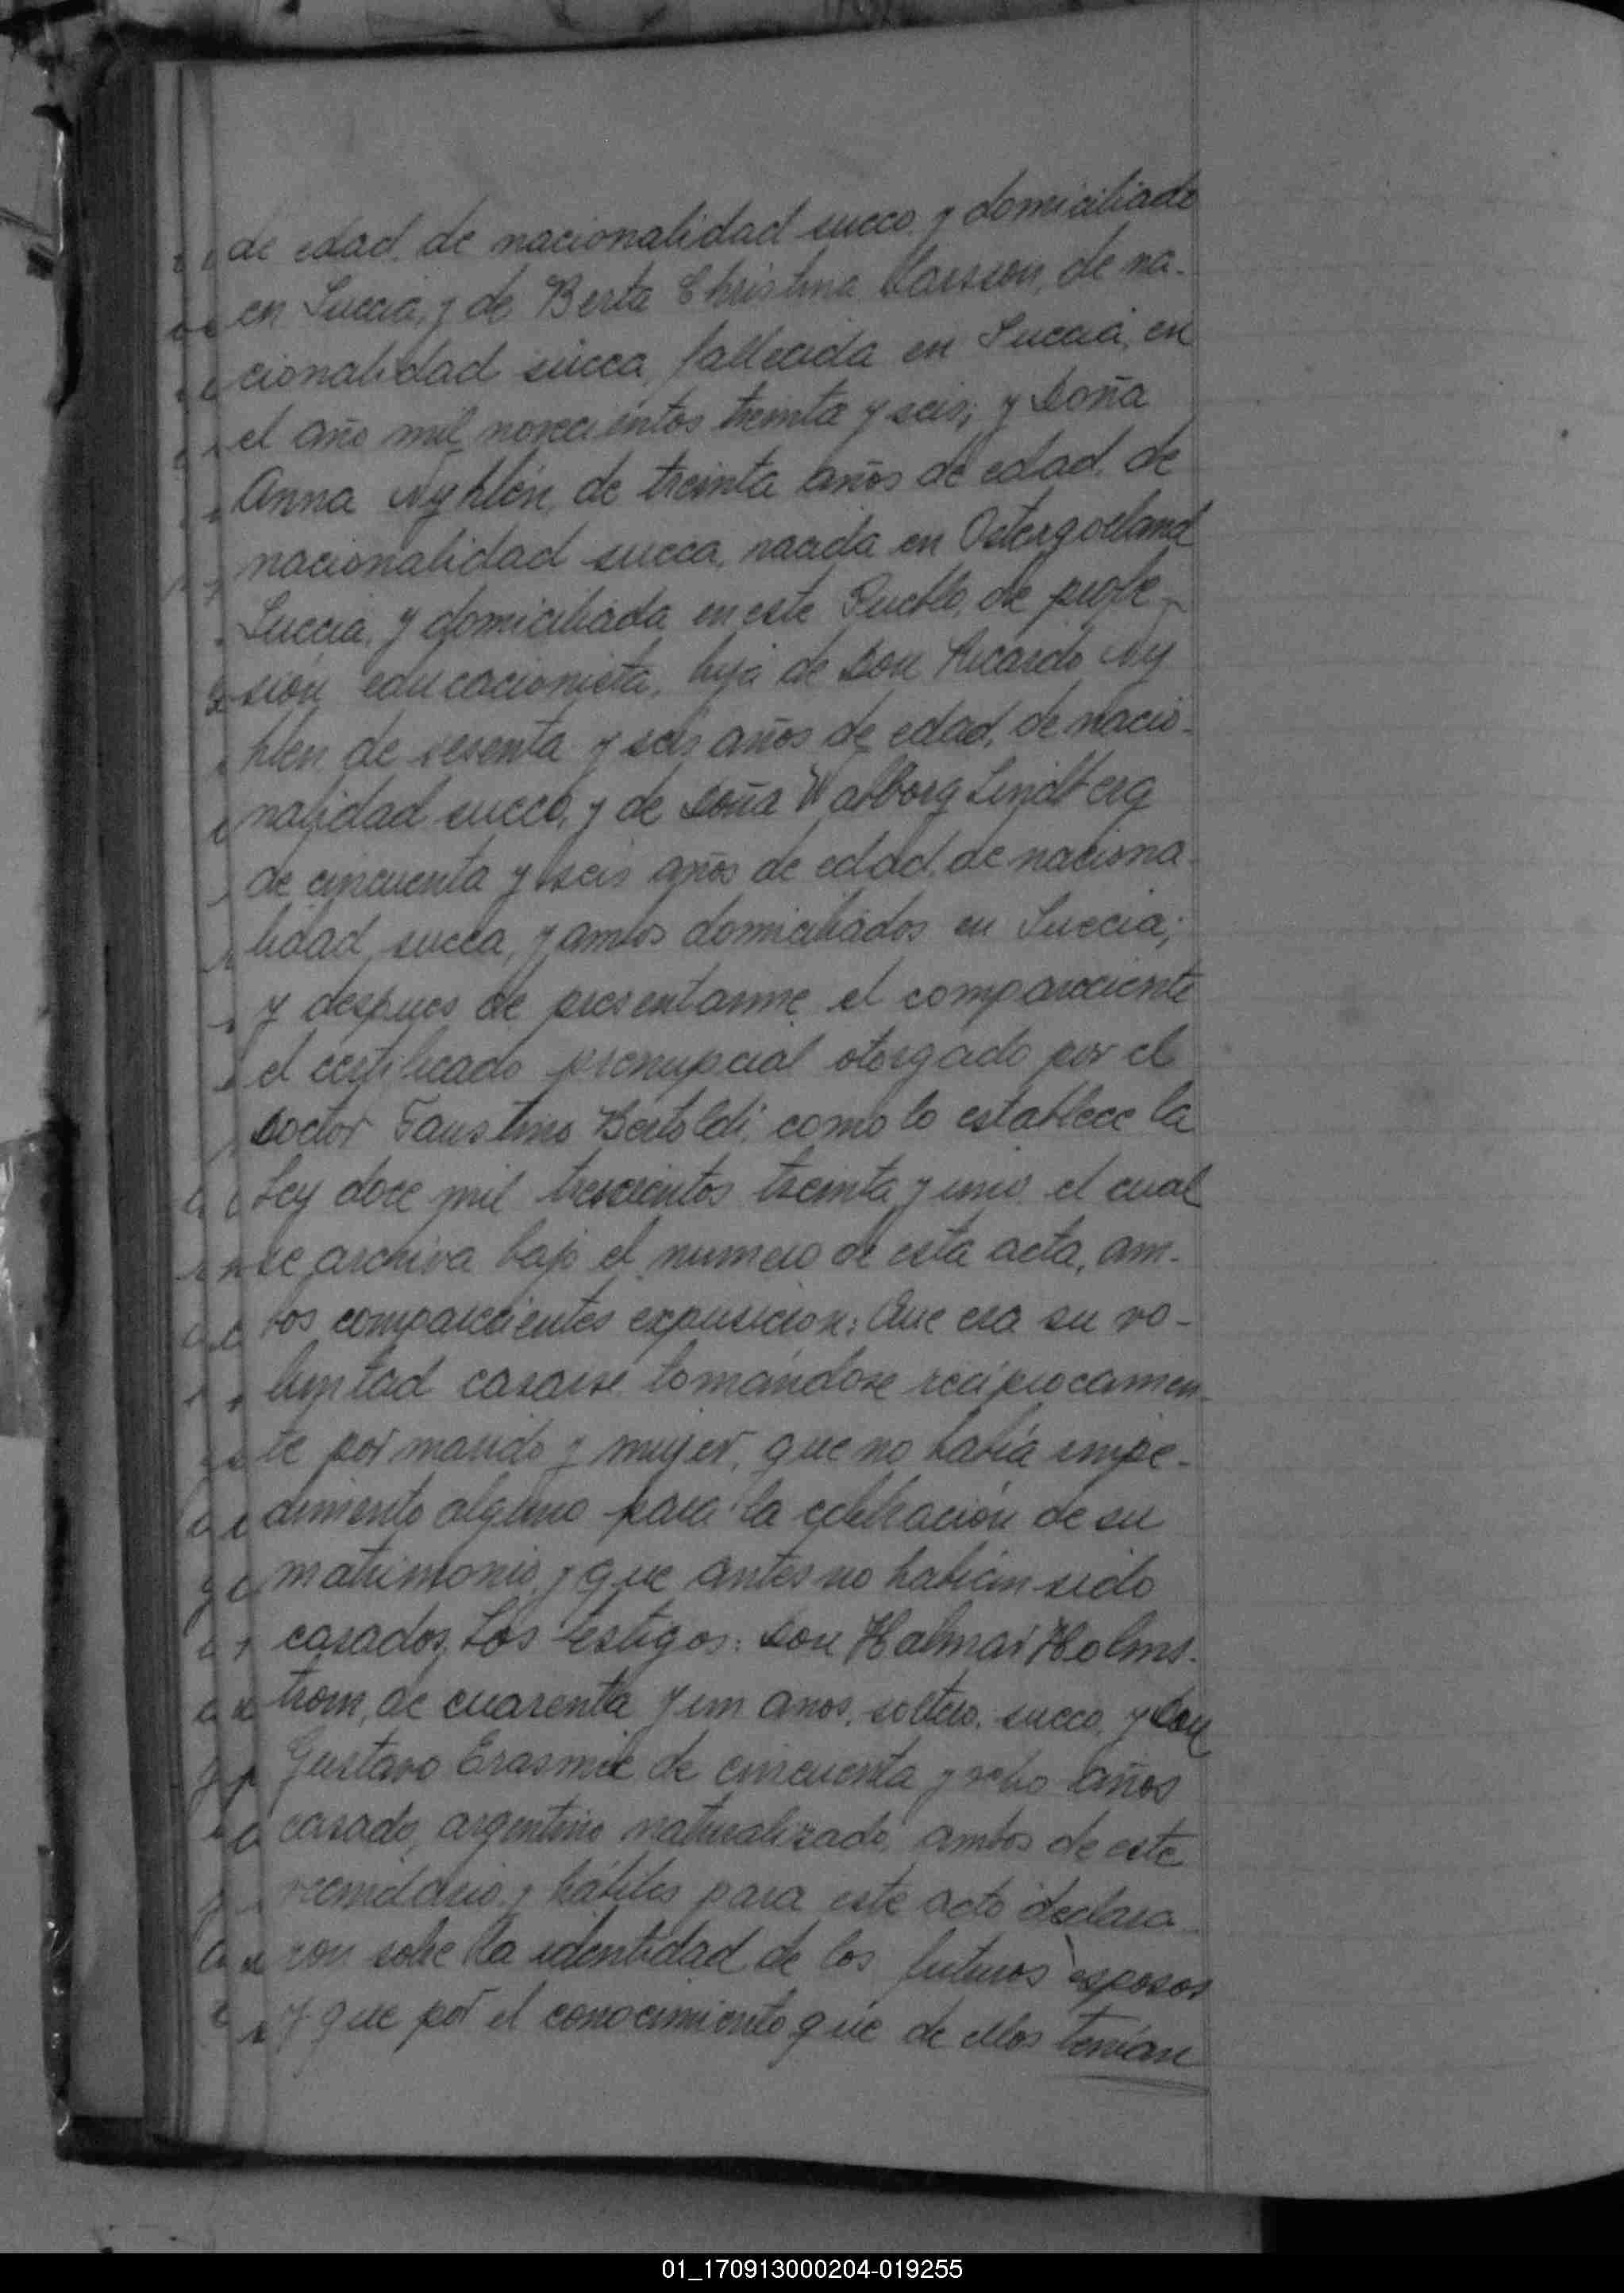 de edad, de nacionalidad sueco y domiciliado
en Suecia, y de Berta Christina Larsson, de na-
cionalidad sueca, fallecida en Suecia, en
el año mil novecientos treinta y seis; y Doña
Anna Nyhlén, de treinta años de edad, de
nacionalidad sueca, nacida en Ostergoeland
Suecia, y domiciliada en este Pueblo, de profe-
sión educacionista, hija de Don Ricardo Ny
hlen de sesenta y seis años de edad, de nacio-
nalidad sueco, y de Doña Walborg Lindberg
de cincuenta y seis años de edad, de naciona-
lidad sueca, y ambos domiciliados en Suecia;
y despues de presentarme el compareciente
el certificado prenupcial otorgado por el
Doctor Faustino Bertoldi, como lo establece la
Ley doce mil trescientos treinta y uno, el cual
se archiva bajo el numero de esta acta, am-
bos comparecientes expusieron: Que era su vo-
luntad casarse tomándose reciprocamen-
te por marido y mujer, que no había impe-
dimento alguno para la celebración de su
matrimonio, y que antes no habían sido
casados, Los testigos: Don Halmar Holms-
trom, de cuarenta y un anos, soltero, sueco, y Don
Gustavo Erasmie de cincuenta y ocho años
casado, argentino naturalizado, ambos de este
vecindario y hábiles para este acto declara-
ron sobre la identidad de los futuros esposos
y que por el conocimiento que de ellos tenían
01_170913000204-019255